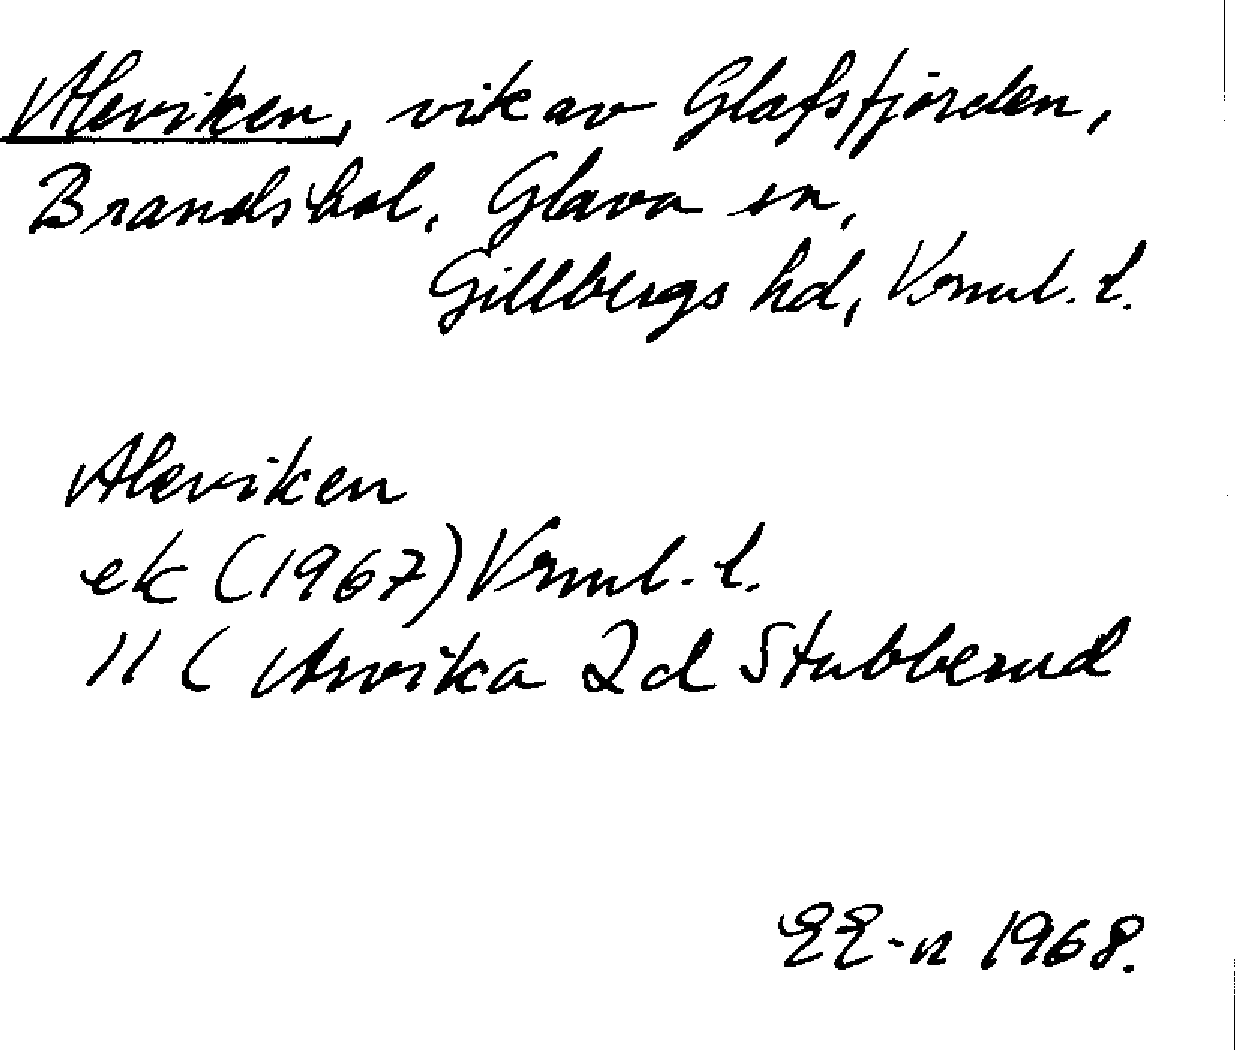 Aleviken, vik av Glafsfjorden,
Brandsbol, Glava sn,
Gillbergs hd, Vrml. l.
Aleviken
ek (1967) Vrml. l.
11 C Arvika 2d Stubberud
EE-n 1968.